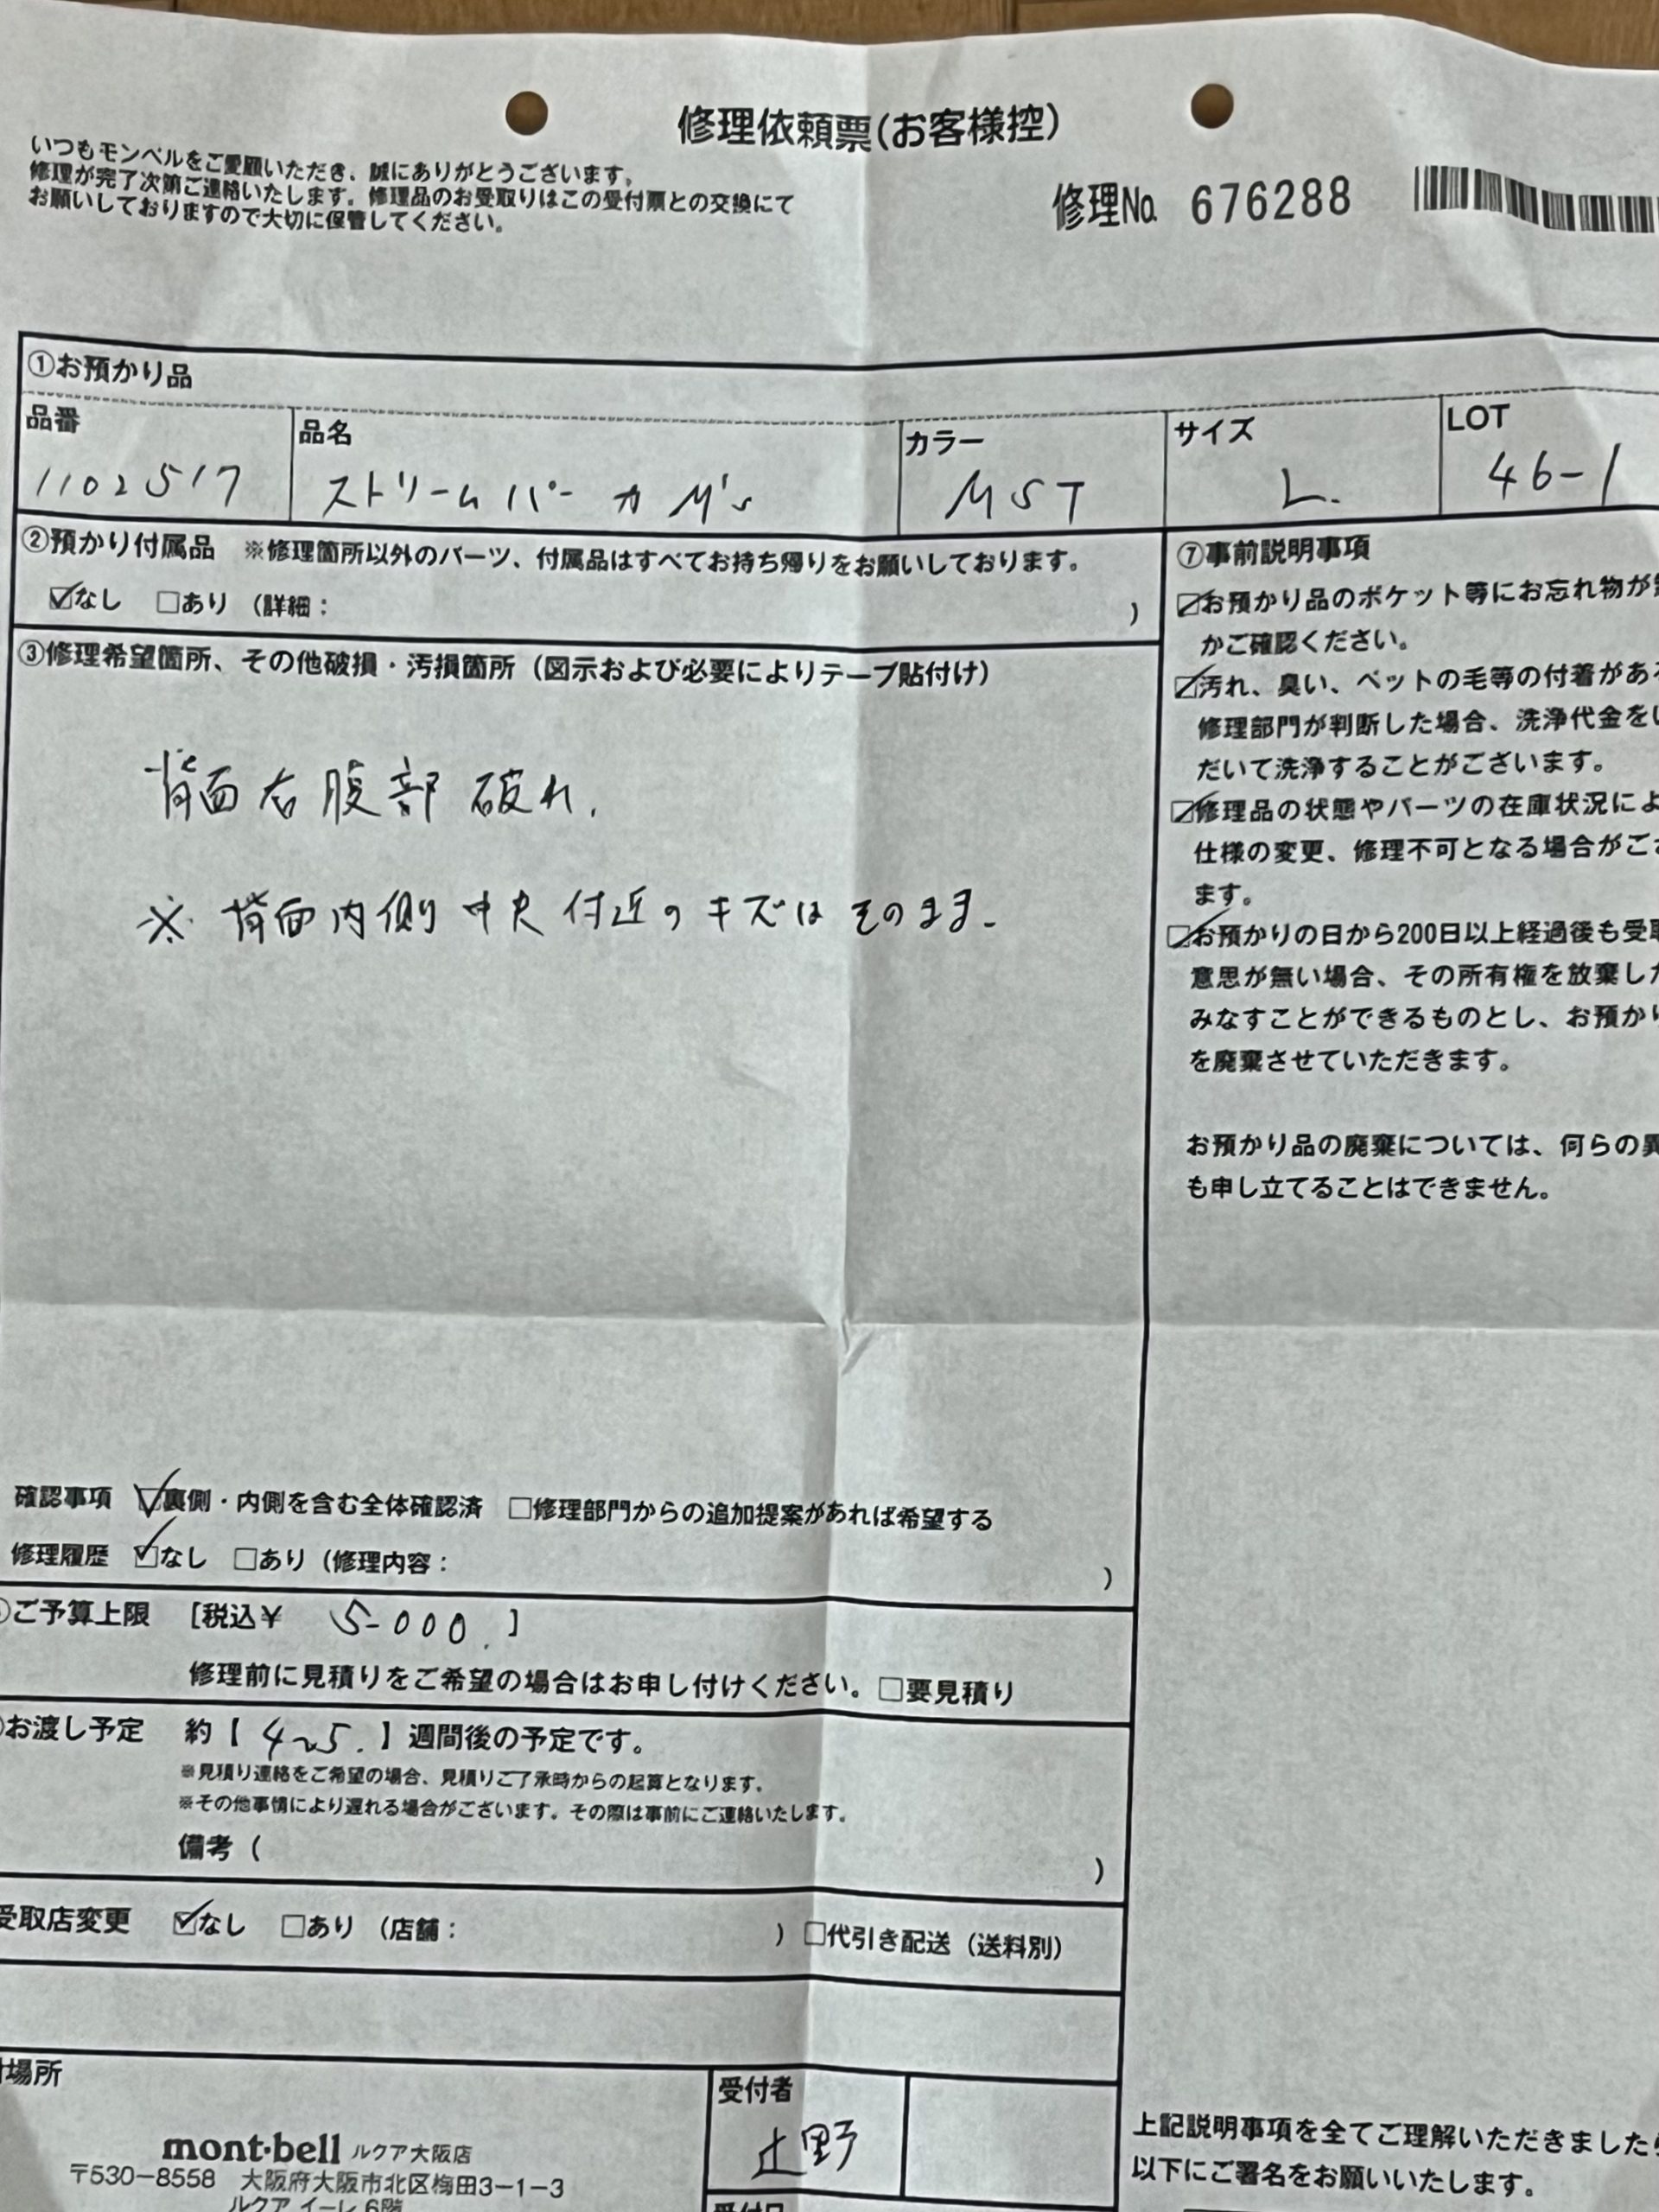 修理依頼票(お客様控)
いつもモンベルをご愛顧いただき、誠にありがとうございます。
修理が完了次第ご連絡いたします。修理品のお受取りはこの受付票との交換にて
お願いしておりますので大切に保管してください。
修理No. 676288
①お預かり品
品番 品名 カラー サイズ LOT
1102517 ストリームパーカ M's MST L. 46-1
②預かり付属品 ※修理箇所以外のパーツ、付属品はすべてお持ち帰りをお願いしております。
☑なし □あり (詳細: )
③修理希望箇所、その他破損・汚損箇所(図示および必要によりテープ貼付け)
背面右腹部 破れ.
※ 背面内側 中央付近のキズはそのまま.
確認事項 ☑裏側・内側を含む全体確認済 □修理部門からの追加提案があれば希望する
修理履歴 ☑なし □あり (修理内容: )
ご予算上限 [税込¥ 5-000. ]
修理前に見積りをご希望の場合はお申し付けください。□要見積り
お渡し予定 約【 4~5. 】週間後の予定です。
※見積り連絡をご希望の場合、見積りご了承時からの起算となります。
※その他事情により遅れる場合がございます。その際は事前にご連絡いたします。
備考 ( )
受取店変更 ☑なし □あり (店舗: ) □代引き配送 (送料別)
⑦事前説明事項
☑お預かり品のポケット等にお忘れ物が
かご確認ください。
☑汚れ、臭い、ペットの毛等の付着があ
修理部門が判断した場合、洗浄代金を
だいて洗浄することがございます。
☑修理品の状態やパーツの在庫状況によ
仕様の変更、修理不可となる場合がござ
ます。
☑お預かりの日から200日以上経過後も受取
意思が無い場合、その所有権を放棄し
みなすことができるものとし、お預かり
を廃棄させていただきます。
お預かり品の廃棄については、何らの異
も申し立てることはできません。
場所
mont-bell ルクア大阪店
〒530-8558 大阪府大阪市北区梅田3-1-3
ルクア イーレ 6階
受付者
辻野
受付日
上記説明事項を全てご理解いただきました
以下にご署名をお願いいたします。